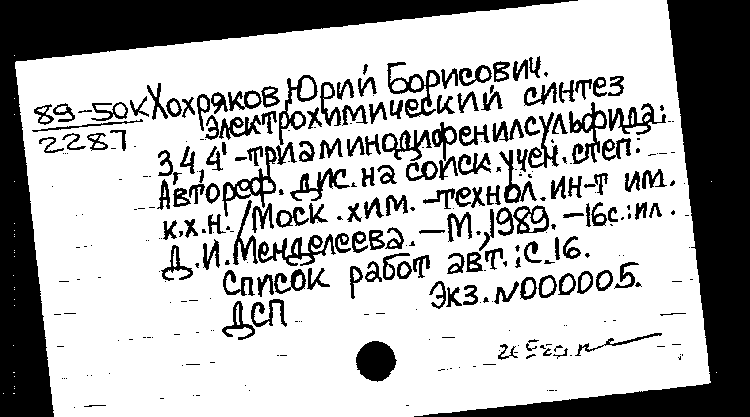 89-50К Хохряков Юрий Борисович.
2287 Электрохимический синтез
3,4,4'-триаминодифенилсульфида:
Автореф. дис. на соиск. учен. степ.
к.х.н. / Моск. хим.-технол. ин-т им.
Д.И. Менделеева. — М., 1989. — 16с.: ил.
Список работ авт.: с. 16.
ДСП Экз. N000005.